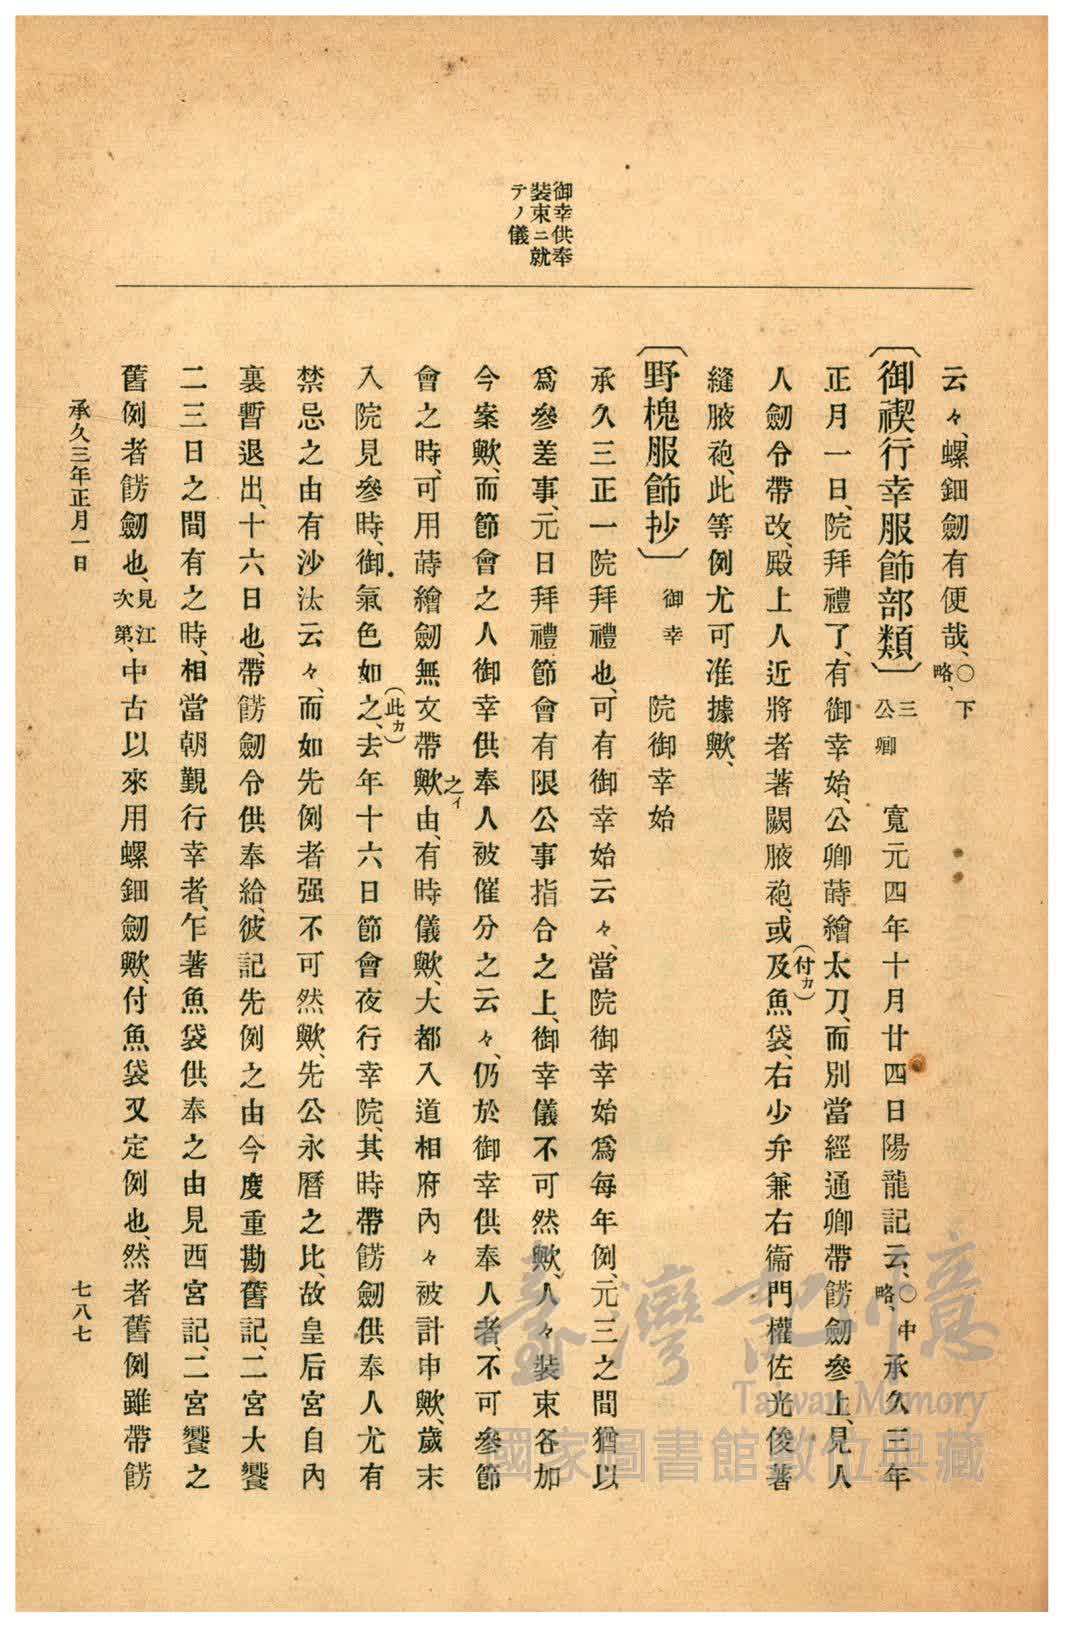 御幸供奉
装束ニ就
テノ儀
云々、螺鈿劒有便哉、○下略、
〔御禊行幸服飾部類〕三公卿 寬元四年十月廿四日陽龍記云、○中略、承久三年
正月一日、院拜禮了、有御幸始、公卿蒔繪太刀、而別當經通卿帶餝劒參上、見人
人劒令帶改、殿上人近將者著闕腋袍、或及(付カ)魚袋、右少弁兼右衞門權佐光俊著
縫腋袍、此等例尤可准據歟、
〔野槐服飾抄〕御幸 院御幸始
承久三正一院拜禮也、可有御幸始云々、當院御幸始爲每年例、元三之間猶以
爲參差事、元日拜禮節會有限公事指合之上、御幸儀不可然歟、人々裝束各加
今案歟、而節會之人御幸供奉人被催分之云々、仍於御幸供奉人者、不可參節
會之時、可用蒔繪劒無文帶歟之イ由、有時儀歟、大都入道相府內々被計申歟、歲末
入院見參時、御氣色如之(此カ)、去年十六日節會夜行幸院、其時帶餝劒供奉人尤有
禁忌之由有沙汰云々、而如先例者强不可然歟、先公永曆之比、故皇后宮自內
裏暫退出、十六日也、帶餝劒令供奉給、彼記先例之由今度重勘舊記、二宮大饗
二三日之間有之時、相當朝覲行幸者、乍著魚袋供奉之由見西宮記、二宮饗之
舊例者餝劒也、見江次第、中古以來用螺鈿劒歟、付魚袋又定例也、然者舊例雖帶餝
承久三年正月一日
七八七
臺灣記憶
Taiwan Memory
國家圖書館數位典藏